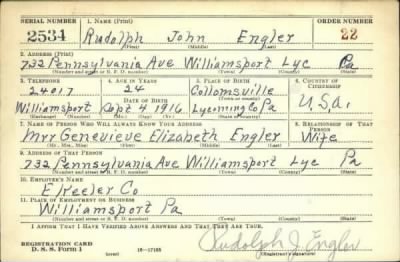 SERIAL NUMBER 1. NAME (Print) ORDER NUMBER
2534 Rudolph John Engler 22
(First) (Middle) (Last)
2. ADDRESS (Print)
732 Pennsylvania Ave Williamsport Lyc Pa
(Number and street or R. F. D. number) (Town) (County) (State)
3. TELEPHONE 4. AGE IN YEARS 5. PLACE OF BIRTH 6. COUNTRY OF CITIZENSHIP
24017 24 Collomsville
DATE OF BIRTH (Town or county)
Williamsport Sept 4 1916 Lycoming Co Pa U.S.A.
(Exchange) (Number) (Mo.) (Day) (Yr.) (State or country)
7. NAME OF PERSON WHO WILL ALWAYS KNOW YOUR ADDRESS 8. RELATIONSHIP OF THAT PERSON
Mrs Genevieve Elizabeth Engler Wife
(Mr., Mrs., Miss) (First) (Middle) (Last)
9. ADDRESS OF THAT PERSON
732 Pennsylvania Ave Williamsport Lyc Pa
(Number and street or R. F. D. number) (Town) (County) (State)
10. EMPLOYER'S NAME
E Keeler Co
11. PLACE OF EMPLOYMENT OR BUSINESS
Williamsport Pa
(Number and street or R. F. D. number) (Town) (County) (State)
I AFFIRM THAT I HAVE VERIFIED ABOVE ANSWERS AND THAT THEY ARE TRUE.
REGISTRATION CARD
D. S. S. Form 1 (over) 16-17105 Rudolph J. Engler
(Registrant's signature)